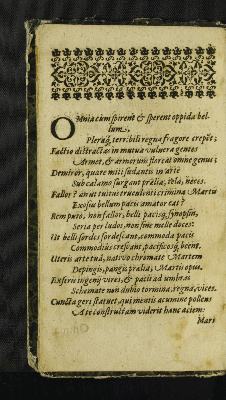 OMnia cum spirent & sperent oppida bel-
lum;
Pleraq; terribili regna fragore crepēt;
Factio distractas in mutua vulnera gentes
Armet, & armorum floreat omne genus;
Demiror, quare miti sudantis in arte
Sub calamo surgant prælia, tela, neces.
Fallor? an ut tuitus truculenti crimina Martis
Exosus bellum pacis amator eat?
Remputo, non fallor, belli pacisq; synopsin,
Seria per ludos, non sine melle doces:
Ut belli sordes sordescant, commoda pacis
Commodius crescant, pacificosq; beent.
Uteris arte tuâ, nativo chromate Martem
Depingis, pangis prælia, Martis opus.
Exseris ingenij vires, & pacis ad umbras
Schemate non dubio tormina, regna, vices.
Cuncta geri statuet, qui mentis acumine pollens
Arte constructam viderit hanc aciem:
Mari